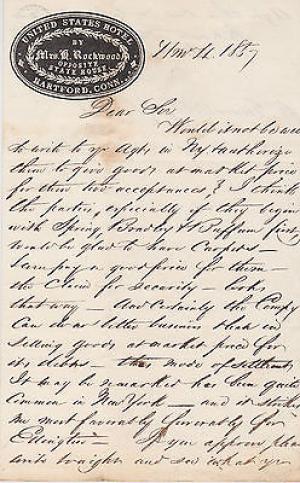 UNITED STATES HOTEL
BY
Mrs. H. Rockwood
OPPOSITE
STATE HOUSE
HARTFORD, CONN.
Nov 12. 1857
Dear Sir
Would it not be well
to write to yr Agts in NY to authorize
them to give goods at market price
for their two acceptances? I think
the parties, especially if they begin
with Spring & Puffum first,
would be glad to have Carpets —
pay a good price for them —
the for security — looks
that way — And Certainly the Compy
Can do no better business than in
selling goods at market price for
its debts — this mode of settlemt
It may be remarked has been quite
Common in New York — and it strikes
me most favorably favorably for
If you approve please
write and see what yr